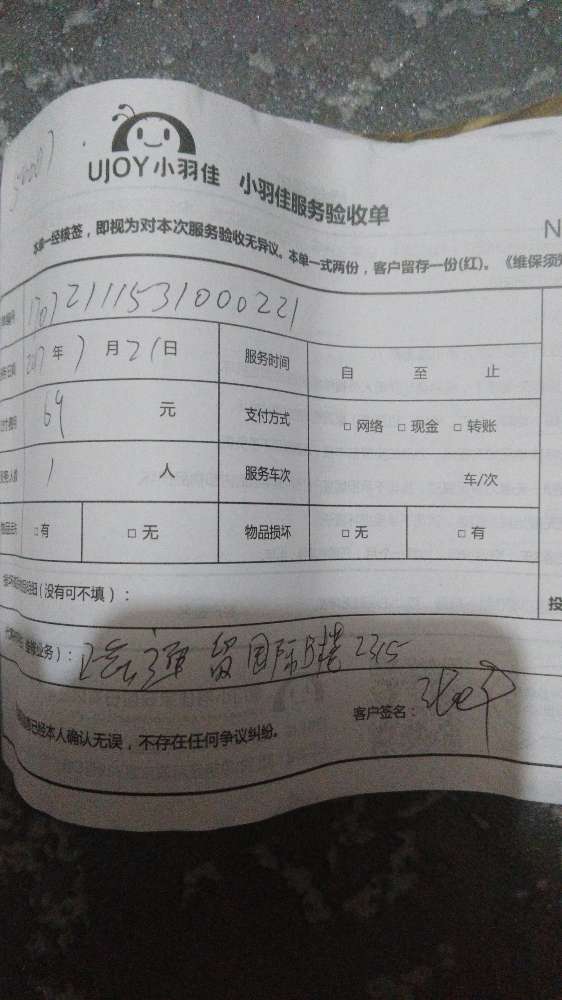 UJOY小羽佳 小羽佳服务验收单
本单一经核签，即视为对本次服务验收无异议。本单一式两份，客户留存一份(红)。《维保须知
17072111531000221
2017年7月21日 服务时间 自 至 止
69 元 支付方式 □ 网络 □ 现金 □ 转账
1 人 服务车次 车/次
□ 有 □ 无 物品损坏 □ 无 □ 有
(没有可不填)：
业务)： 国际B楼2315
客户签名：
已经本人确认无误，不存在任何争议纠纷。